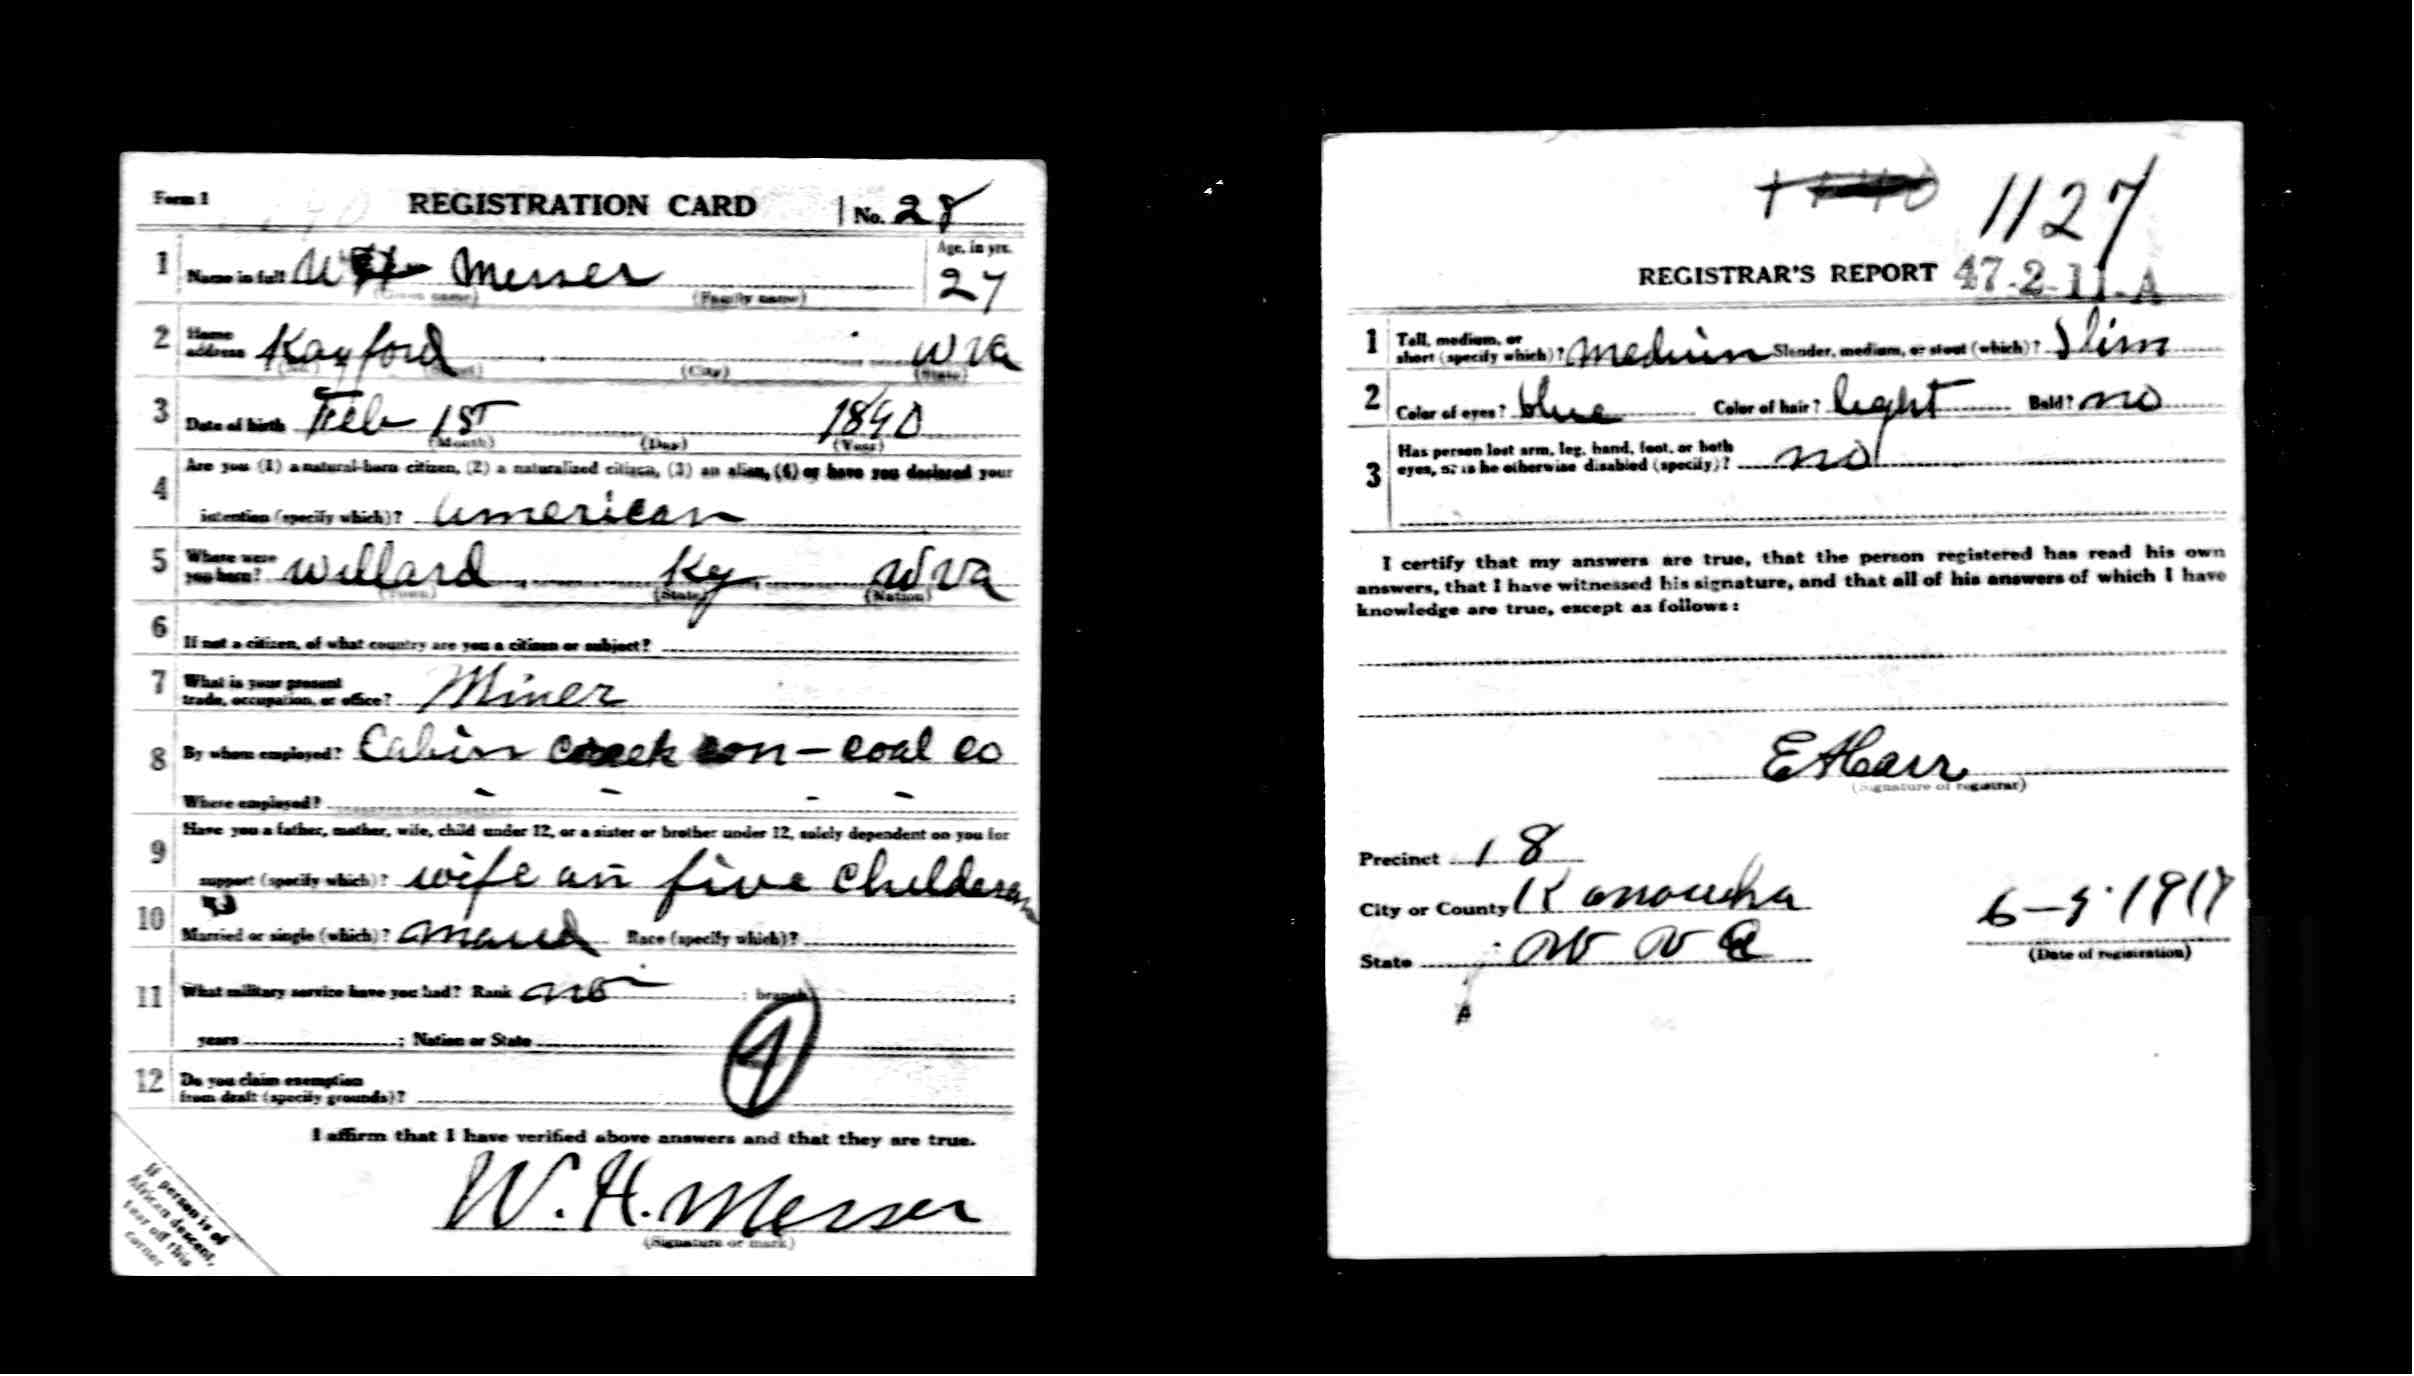 Form 1 REGISTRATION CARD No. 28
1 Name in full W H Messer Age, in yrs. 27
(Given name) (Family name)
2 Home address Kayford W Va
(No.) (Street) (City) (State)
3 Date of birth Feb 1st 1890
(Month) (Day) (Year)
4 Are you (1) a natural-born citizen, (2) a naturalized citizen, (3) an alien, (4) or have you declared your
intention (specify which)? american
5 Where were you born? Willard Ky W Va
(Town) (State) (Nation)
6 If not a citizen, of what country are you a citizen or subject?
7 What is your present
trade, occupation, or office? Miner
8 By whom employed? Cabin creek con - coal co
Where employed? - - - -
9 Have you a father, mother, wife, child under 12, or a sister or brother under 12, solely dependent on you for
support (specify which)? wife an five childeren
10 Married or single (which)? Race (specify which)?
11 What military service have you had? Rank no ; branch ;
years ; Nation or State
12 Do you claim exemption
from draft (specify grounds)?
I affirm that I have verified above answers and that they are true.
W. H. Messer
(Signature or mark)
If person is of
African descent,
tear off this
corner
1127
REGISTRAR'S REPORT 47-2-11-A
1 Tall, medium, or
short (specify which)? Medium Slender, medium, or stout (which)? Slim
2 Color of eyes? blue Color of hair? light Bald? no
3 Has person lost arm, leg, hand, foot, or both
eyes, or is he otherwise disabled (specify)? no
I certify that my answers are true, that the person registered has read his own
answers, that I have witnessed his signature, and that all of his answers of which I have
knowledge are true, except as follows:
(Signature of registrar)
Precinct 18
City or County Kanawha
State W Va
6-5-1917
(Date of registration)